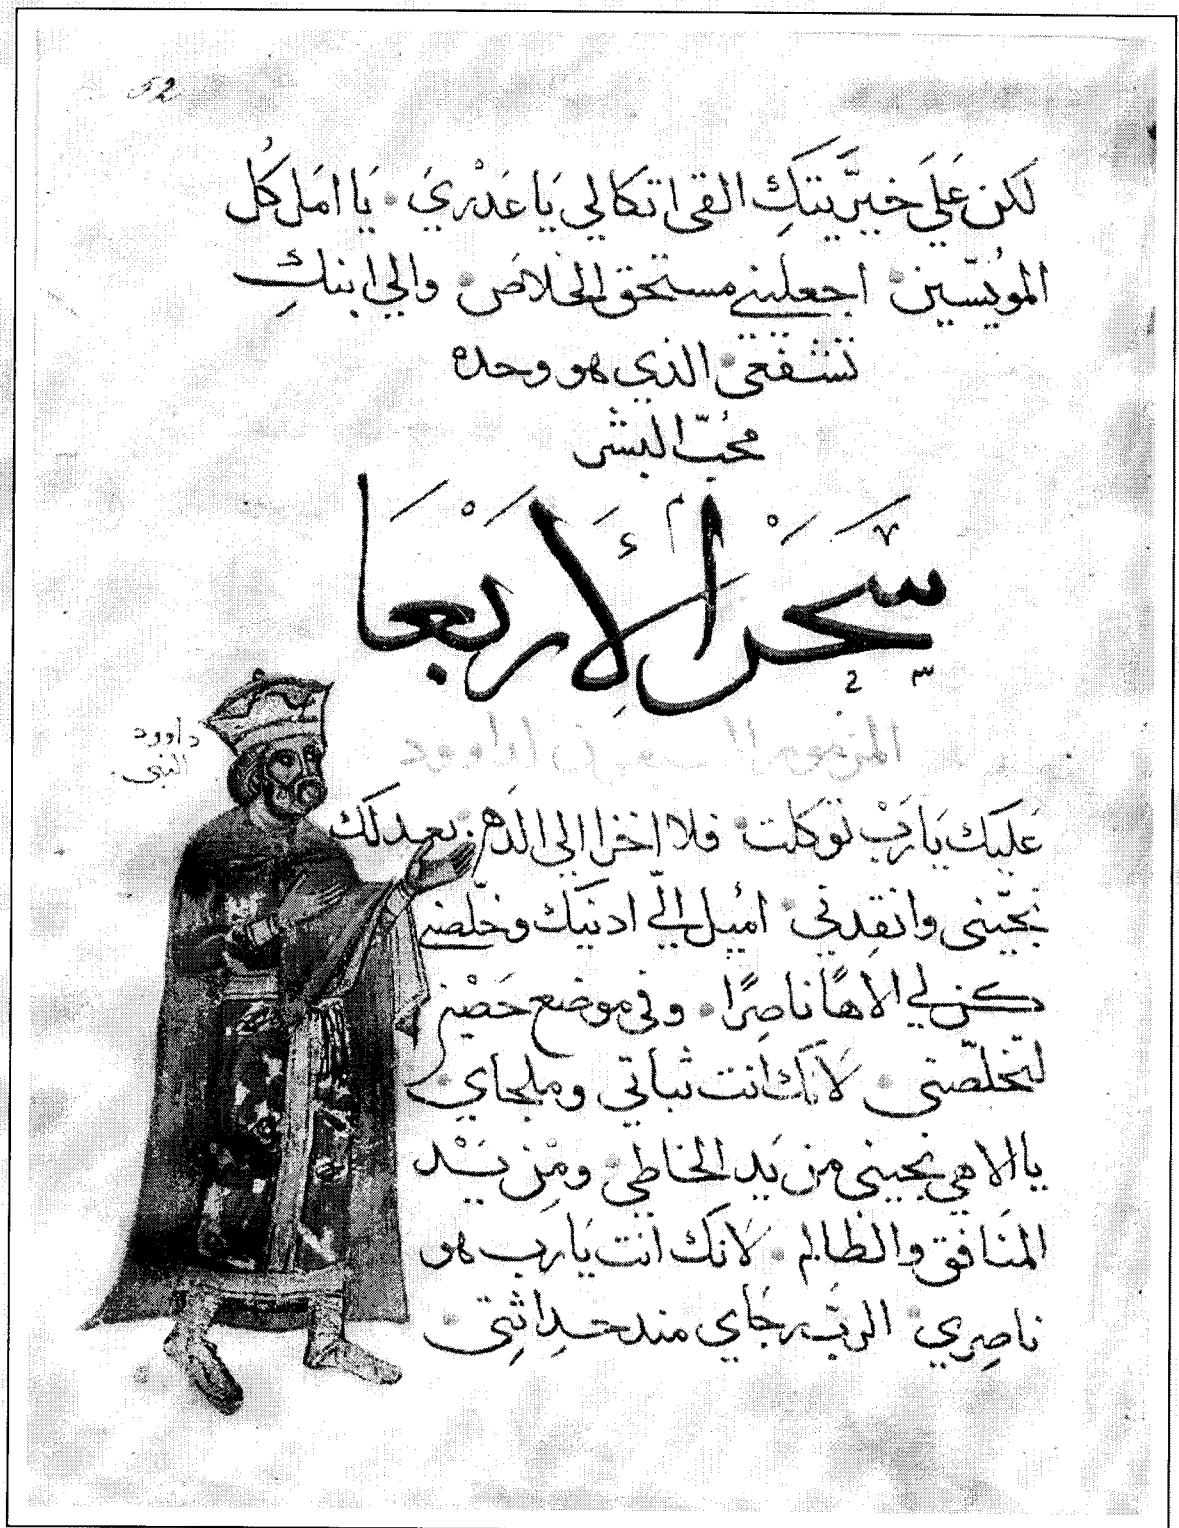 52
لكن عَلَي خيرَّيتكِ القى اتكالي يَا عَدْرَيَ · يَا امَل كُل
المويّسين · اجعلينى مستحق الخلاص · والي ابنكِ
تشفعى · الذي هو وحده
محُبّ البشر
سَحَرَ الأَرَبْعَا
المزمور السبعين لداوود
داوود
النبى
عَليَك يَا رَبْ توَكلت · فلا اخزا الي الدَهر · بعدلَك
نجّينى وانقدني · امُيل اليّ ادنَيك وخلّصنى
كن لي الاهًا ناصِرًا · وفى موضع حَصْين
لتخلّصنى · لاَنّك انت ثباتي وملجاي ·
يا الاهي نجينى من يَد الخاطي · ومِن يَــد
المنَافق والظالم · لاَنكَ انت يَارب هو
ناصِري · الربّ رجَاي مند حداثتِى ·